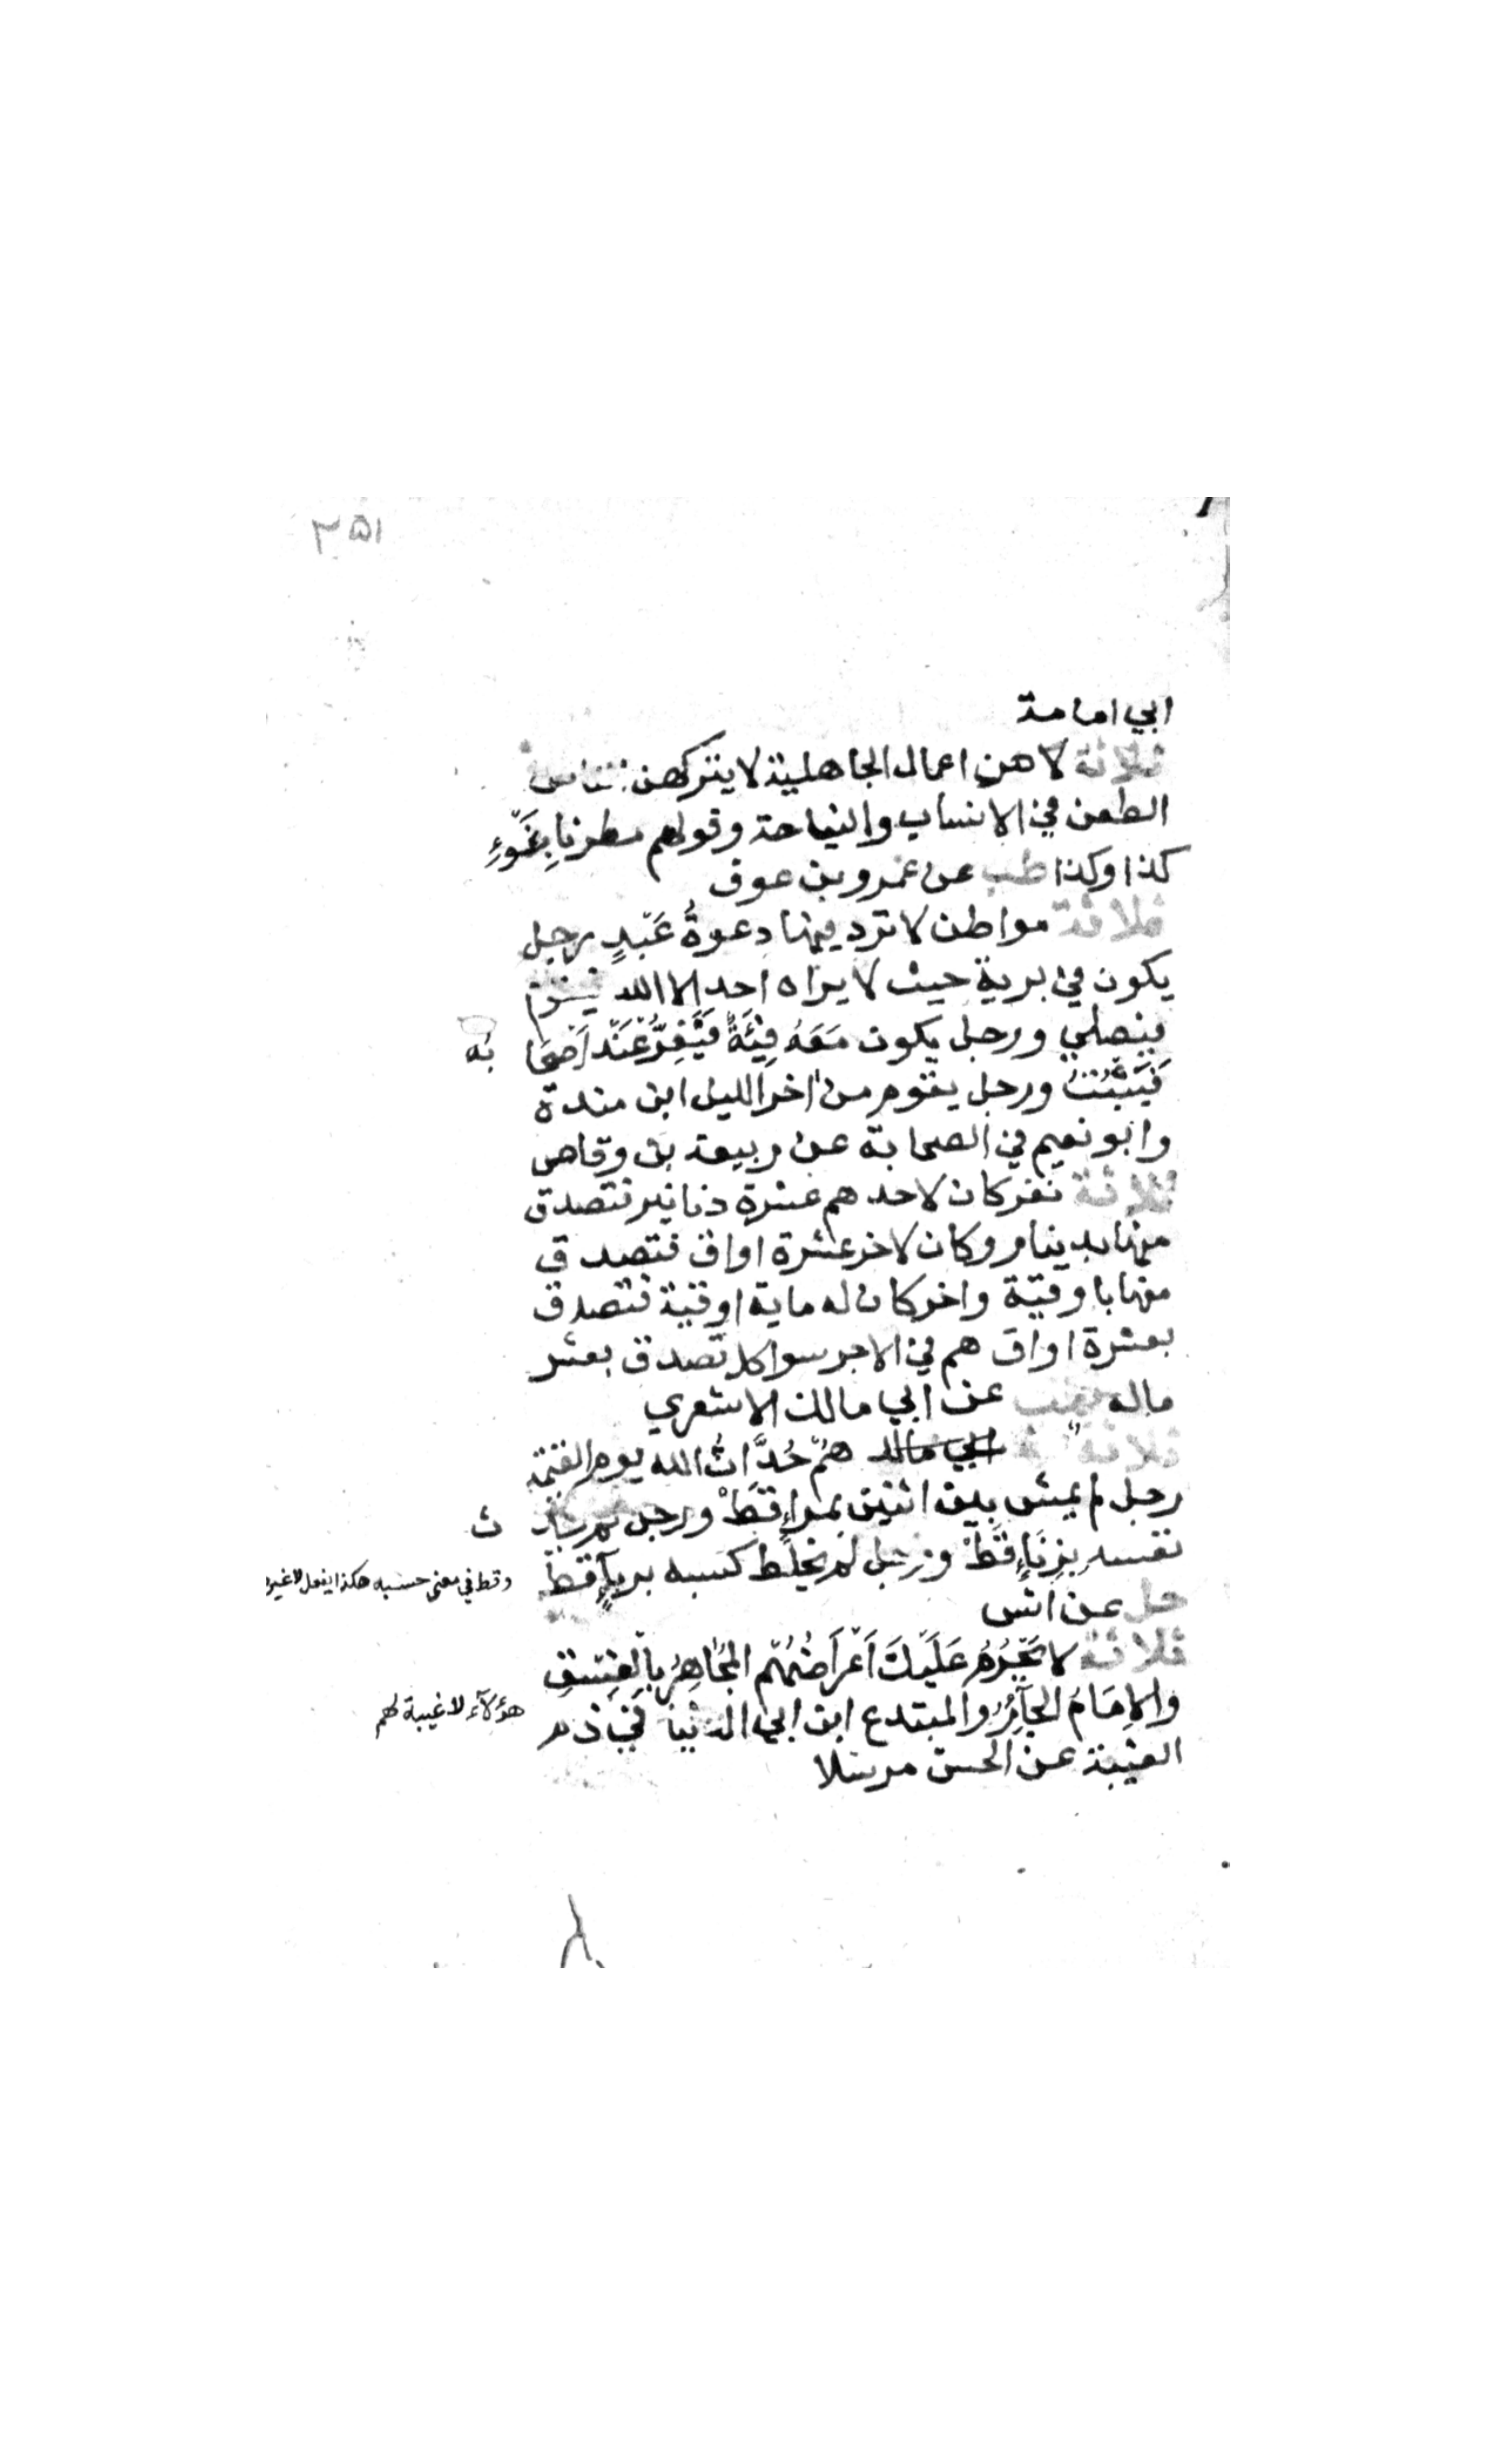 ٢٥١
ابي امامة
ثلاثة لا هن اعمال الجاهلية لا يتركهن الناس
الطعن في الانساب والنياحة وقولهم مطرنا بِنَوْءِ
كذا وكذا طب عن عمرو بن عوف
ثلاثة مواطن لا ترد فيها دعوةُ عَبْدٍ رجل
يكون في برية حيث لا يراه احد الا الله فيقوم
فيصلي ورجل يكون مَعَهُ فِئَةٌ فَيَفِرُّ عَنْهُ اَصْحَا به
فَيَثْبُتُ ورجل يقوم من اخر الليل ابن مندة
وابو نعيم في الصحابة عن ربيعة بن وقاص
ثلاثة نفر كان لاحدهم عشرة دنانير فتصدق
منها بدينار وكان لاخر عشرة اواق فتصدق
منها باوقية واخر كان له ماية اوقية فتصدق
بعشرة اواق هم في الاجر سوا كل تصدق بعشر
ماله طب عن ابي مالك الاشعري
ثلاثة ابي مالك هُمْ حُدَّاثُ الله يوم القيمة
رجل لم يمش بين اثنين بمراءٍ قَطْ ورجل لم يحدث
نفسه بِزِنَاءٍ قَطْ ورجل لم يخلط كسبه برباءٍ قَطْ
وقط في معنى حسبه هكذا يفعل لا غير
حل عن انس
ثلاثة لا تَحْرُمُ عَلَيْكَ اَعْرَاضُهُمْ المُجَاهِرُ بِالْفِسْقِ
والاِمَامُ الجَآئِرُ والمبتدع ابن ابي الدنيا في ذم
هؤلآء لا غيبة لهم
الغيبة عن الحسن مرسلا